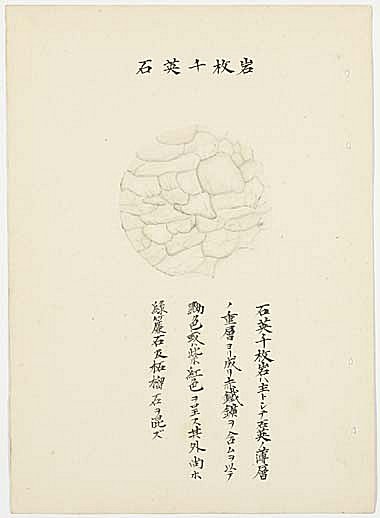 石英千枚岩
石英千枚岩ハ主トシテ石英ノ薄層
ノ重層ヨリ成リ赤鐵鑛ヲ含ムヲ以テ
色紫紅色ヲ呈ス其外尚ホ
綠簾石及柘榴石ヲ混ズ